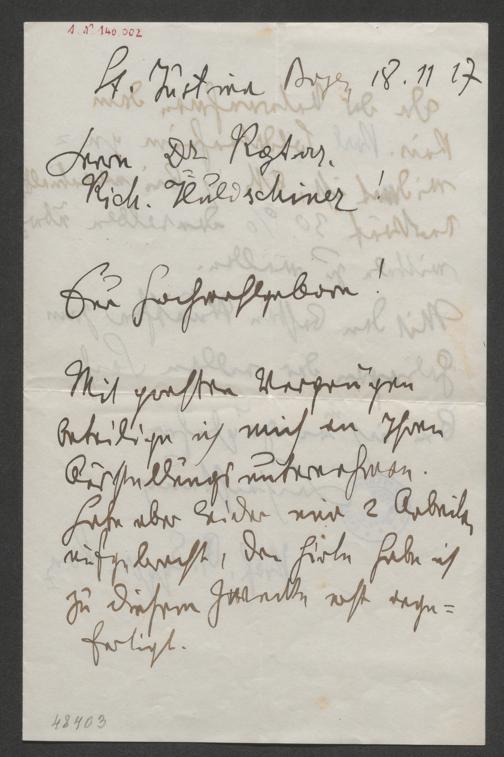 I. N. 140.002
St. Justina Bozen 18.11 17
Herrn Dr
Rich. Huldschiner!
Euer Hochwohlgeboren!
Mit großten Vergnügen
beteilige ich mich an Ihren
Ausstellungsunternehmen.
Habe aber leider nur 2 Arbeiten
aufgebracht, den Hirten habe ich
zu diesem Zwecke erst
fertigt.
48403